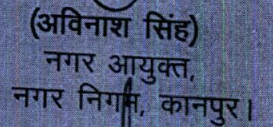 (अविनाश सिंह)
नगर आयुक्त,
नगर निगम, कानपुर।